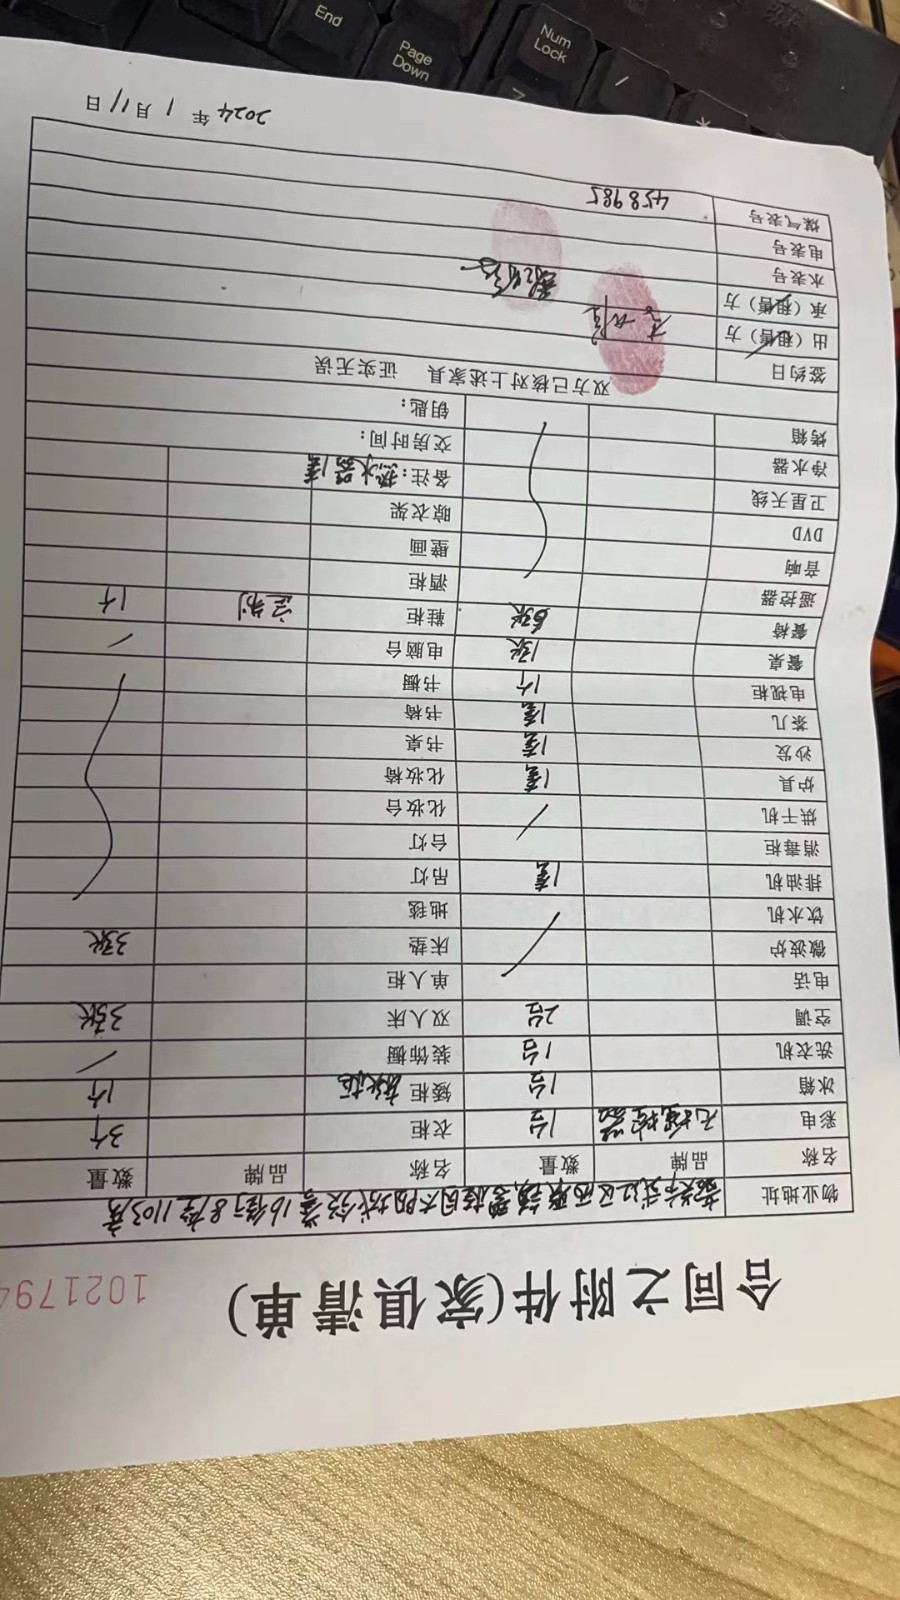 合同之附件(家俱清单)
102179
物业地址
16
8座1103房
名称 品牌 数量 名称 品牌 数量
彩电 无遥控器 1台 衣柜 3个
冰箱 1台 矮柜 1个
洗衣机 1台 装饰橱 /
空调 2台 双人床 3张
电话 单人柜
微波炉 床垫 3张
饮水机 地毯
排油机 1套 吊灯
消毒柜 台灯
烘干机 化妆台
炉具 1套 化妆椅
沙发 1套 书桌
茶几 1套 书椅
电视柜 1个 书橱
餐桌 1张 电脑台 /
餐椅 6张 鞋柜 定制 1个
遥控器 酒柜
音响 壁画
DVD 晾衣架
卫星天线 备注:热水器1套
净水器 交房时间:
烤箱 钥匙:
双方已核对上述家具 证实无误
签约日
出(租售)方
承(租售)方
水表号
电表号
煤气表号 458985
2024年1月11日
End
Page Down
Num Lock
/
*